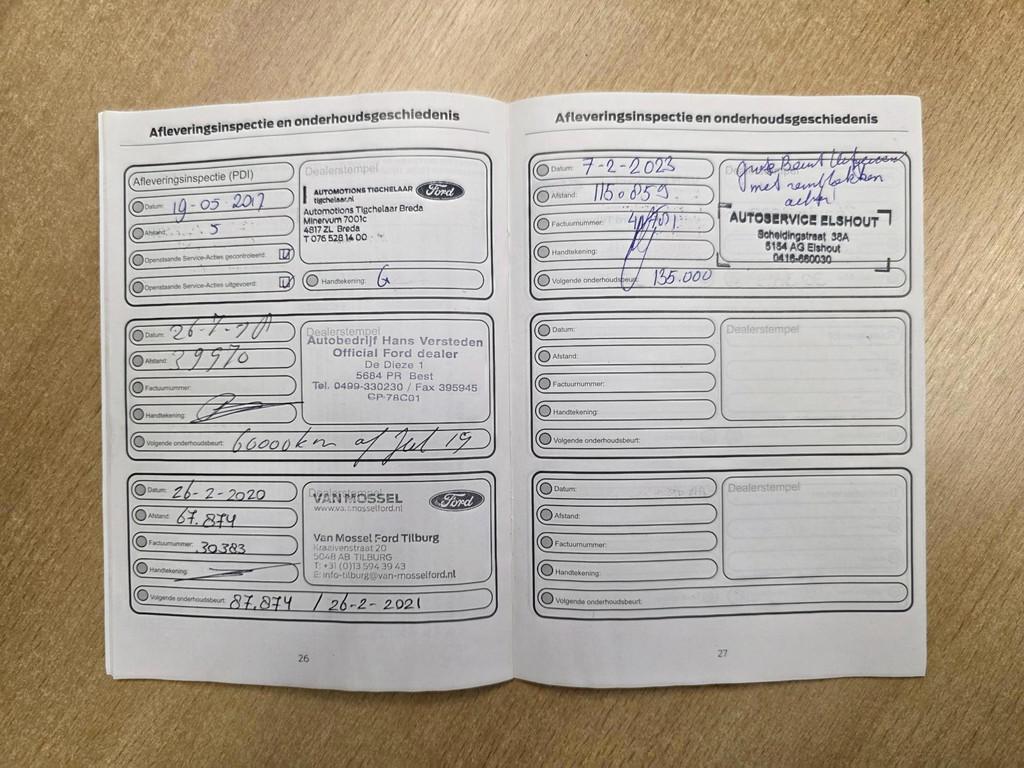 Afleveringsinspectie en onderhoudsgeschiedenis
Afleveringsinspectie (PDI)
Datum: 19-05-2017
Afstand: 5
Openstaande Service-Acties gecontroleerd:
Openstaande Service-Acties uitgevoerd:
Dealerstempel
AUTOMOTIONS TIGCHELAAR
tigchelaar.nl
Ford
Automotions Tigchelaar Breda
Minervum 7001c
4817 ZL Breda
T 076 528 14 00
Handtekening: G
Datum: 26-7-
Afstand: 39970
Factuurnummer:
Handtekening:
Volgende onderhoudsbeurt: 60000km of Jul 19
Dealerstempel
Autobedrijf Hans Versteden
Official Ford dealer
De Dieze 1
5684 PR Best
Tel. 0499-330230 / Fax 395945
CP-78C01
Datum: 26-2-2020
Afstand: 67.874
Factuurnummer: 30383
Handtekening:
Volgende onderhoudsbeurt: 87.874 / 26-2-2021
Dealerstempel
VAN MOSSEL
www.van-mosselford.nl
Ford
Van Mossel Ford Tilburg
Kraaivenstraat 20
5048 AB TILBURG
T: +31 (0)13 594 39 43
E: info-tilburg@van-mosselford.nl
26
Afleveringsinspectie en onderhoudsgeschiedenis
Datum: 7-2-2023
Afstand: 115.859
Factuurnummer:
Handtekening:
Volgende onderhoudsbeurt: 135.000
Dealerstempel
grote Beurt
met remblokken
achter
AUTOSERVICE ELSHOUT
Scheidingstraat 38A
5154 AG Elshout
0416-660030
Datum:
Afstand:
Factuurnummer:
Handtekening:
Volgende onderhoudsbeurt:
Dealerstempel
Datum:
Afstand:
Factuurnummer:
Handtekening:
Volgende onderhoudsbeurt:
Dealerstempel
27